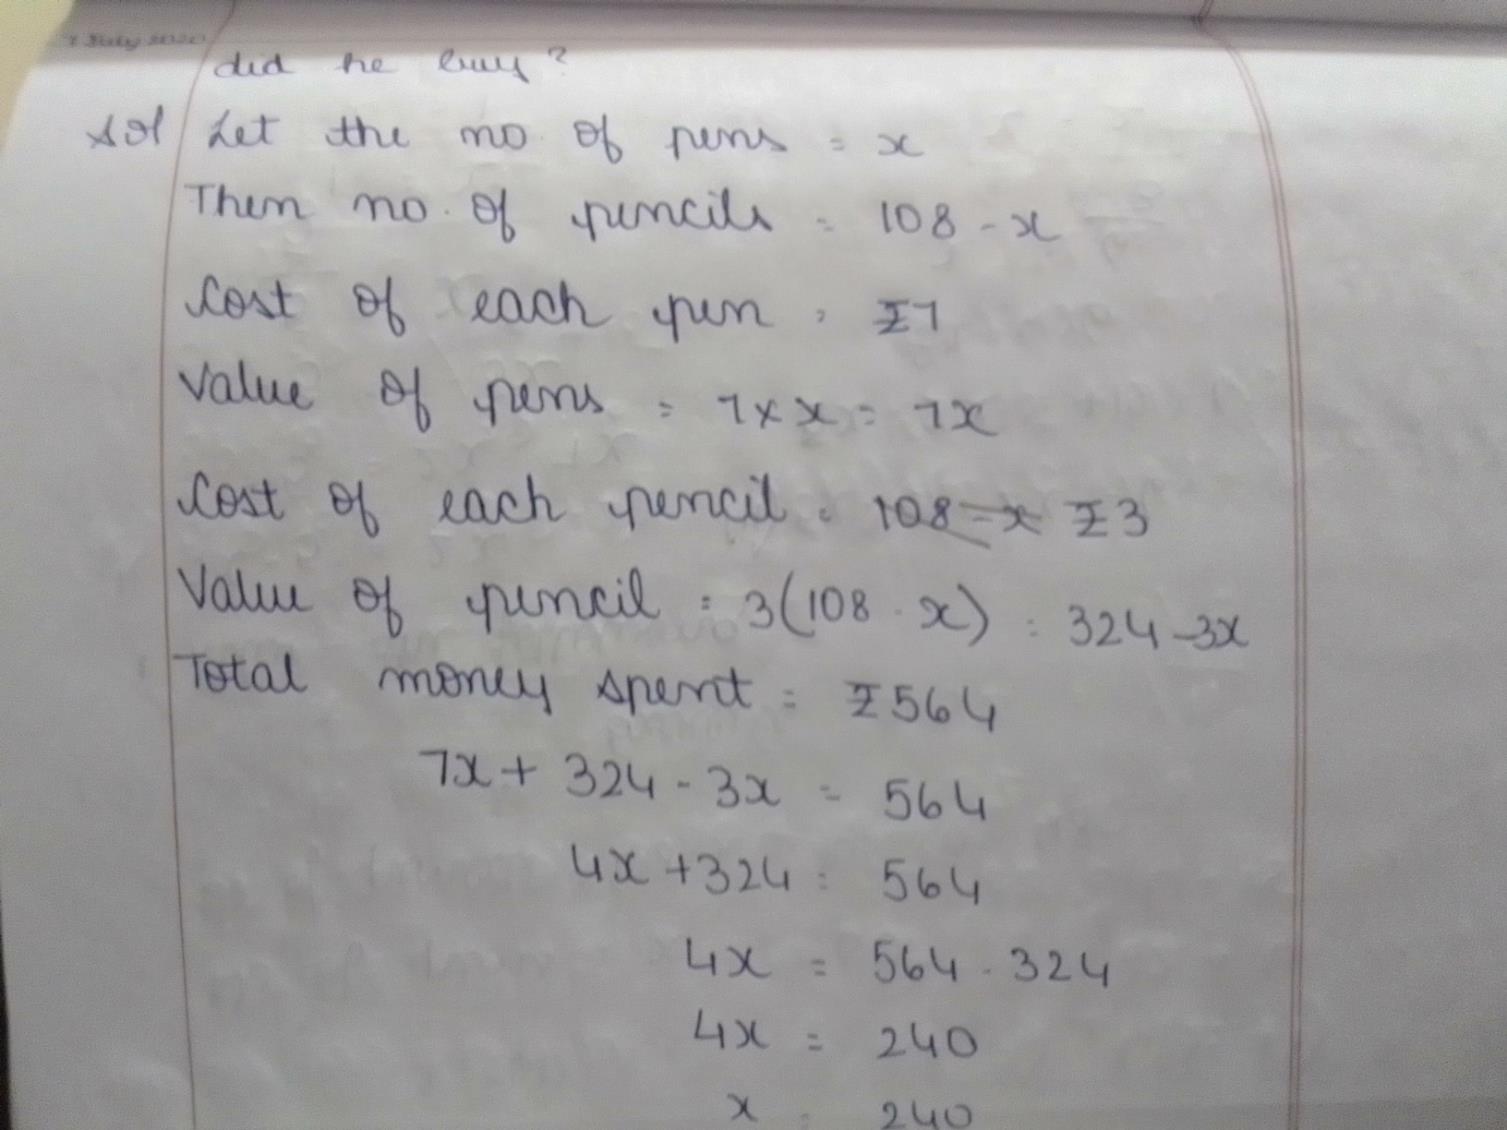 7 July 2020
did he buy?
Sol Let the no. of pens = x
Then no. of pencils = 108 - x
Cost of each pen = ₹7
Value of pens = 7 × x = 7x
Cost of each pencil = 108 - x ₹3
Value of pencil = 3(108 - x) = 324 - 3x
Total money spent = ₹564
7x + 324 - 3x = 564
4x + 324 = 564
4x = 564 - 324
4x = 240
x = 240